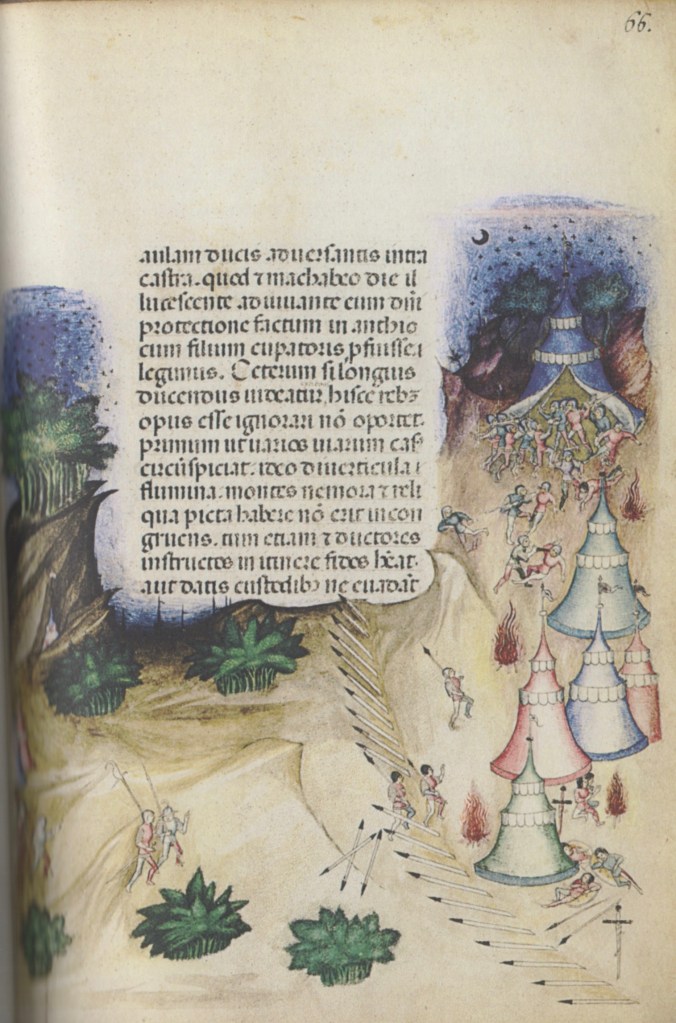 66.
aulam ducis aduersantis intra
castra. quod ⁊ machabeo die il
lucescente adiuuante eum dñi
protectione factum in anthio
cum filium eupatoris p̱fuisse.
legimus. Ceterum si longius
ducendus uideatur, hisce rebꝫ
opus esse ignorari nō oportet.
primum ut uarios uiarum cas9
circūspiciat. ideo diuerticula.
flumina. montes nemora ⁊ reli
qua picta habere nō erit incon
gruens. cum etiam ⁊ ductores
instructos in itinere fides hēat.
aut datis custodibꝫ ne euadāt